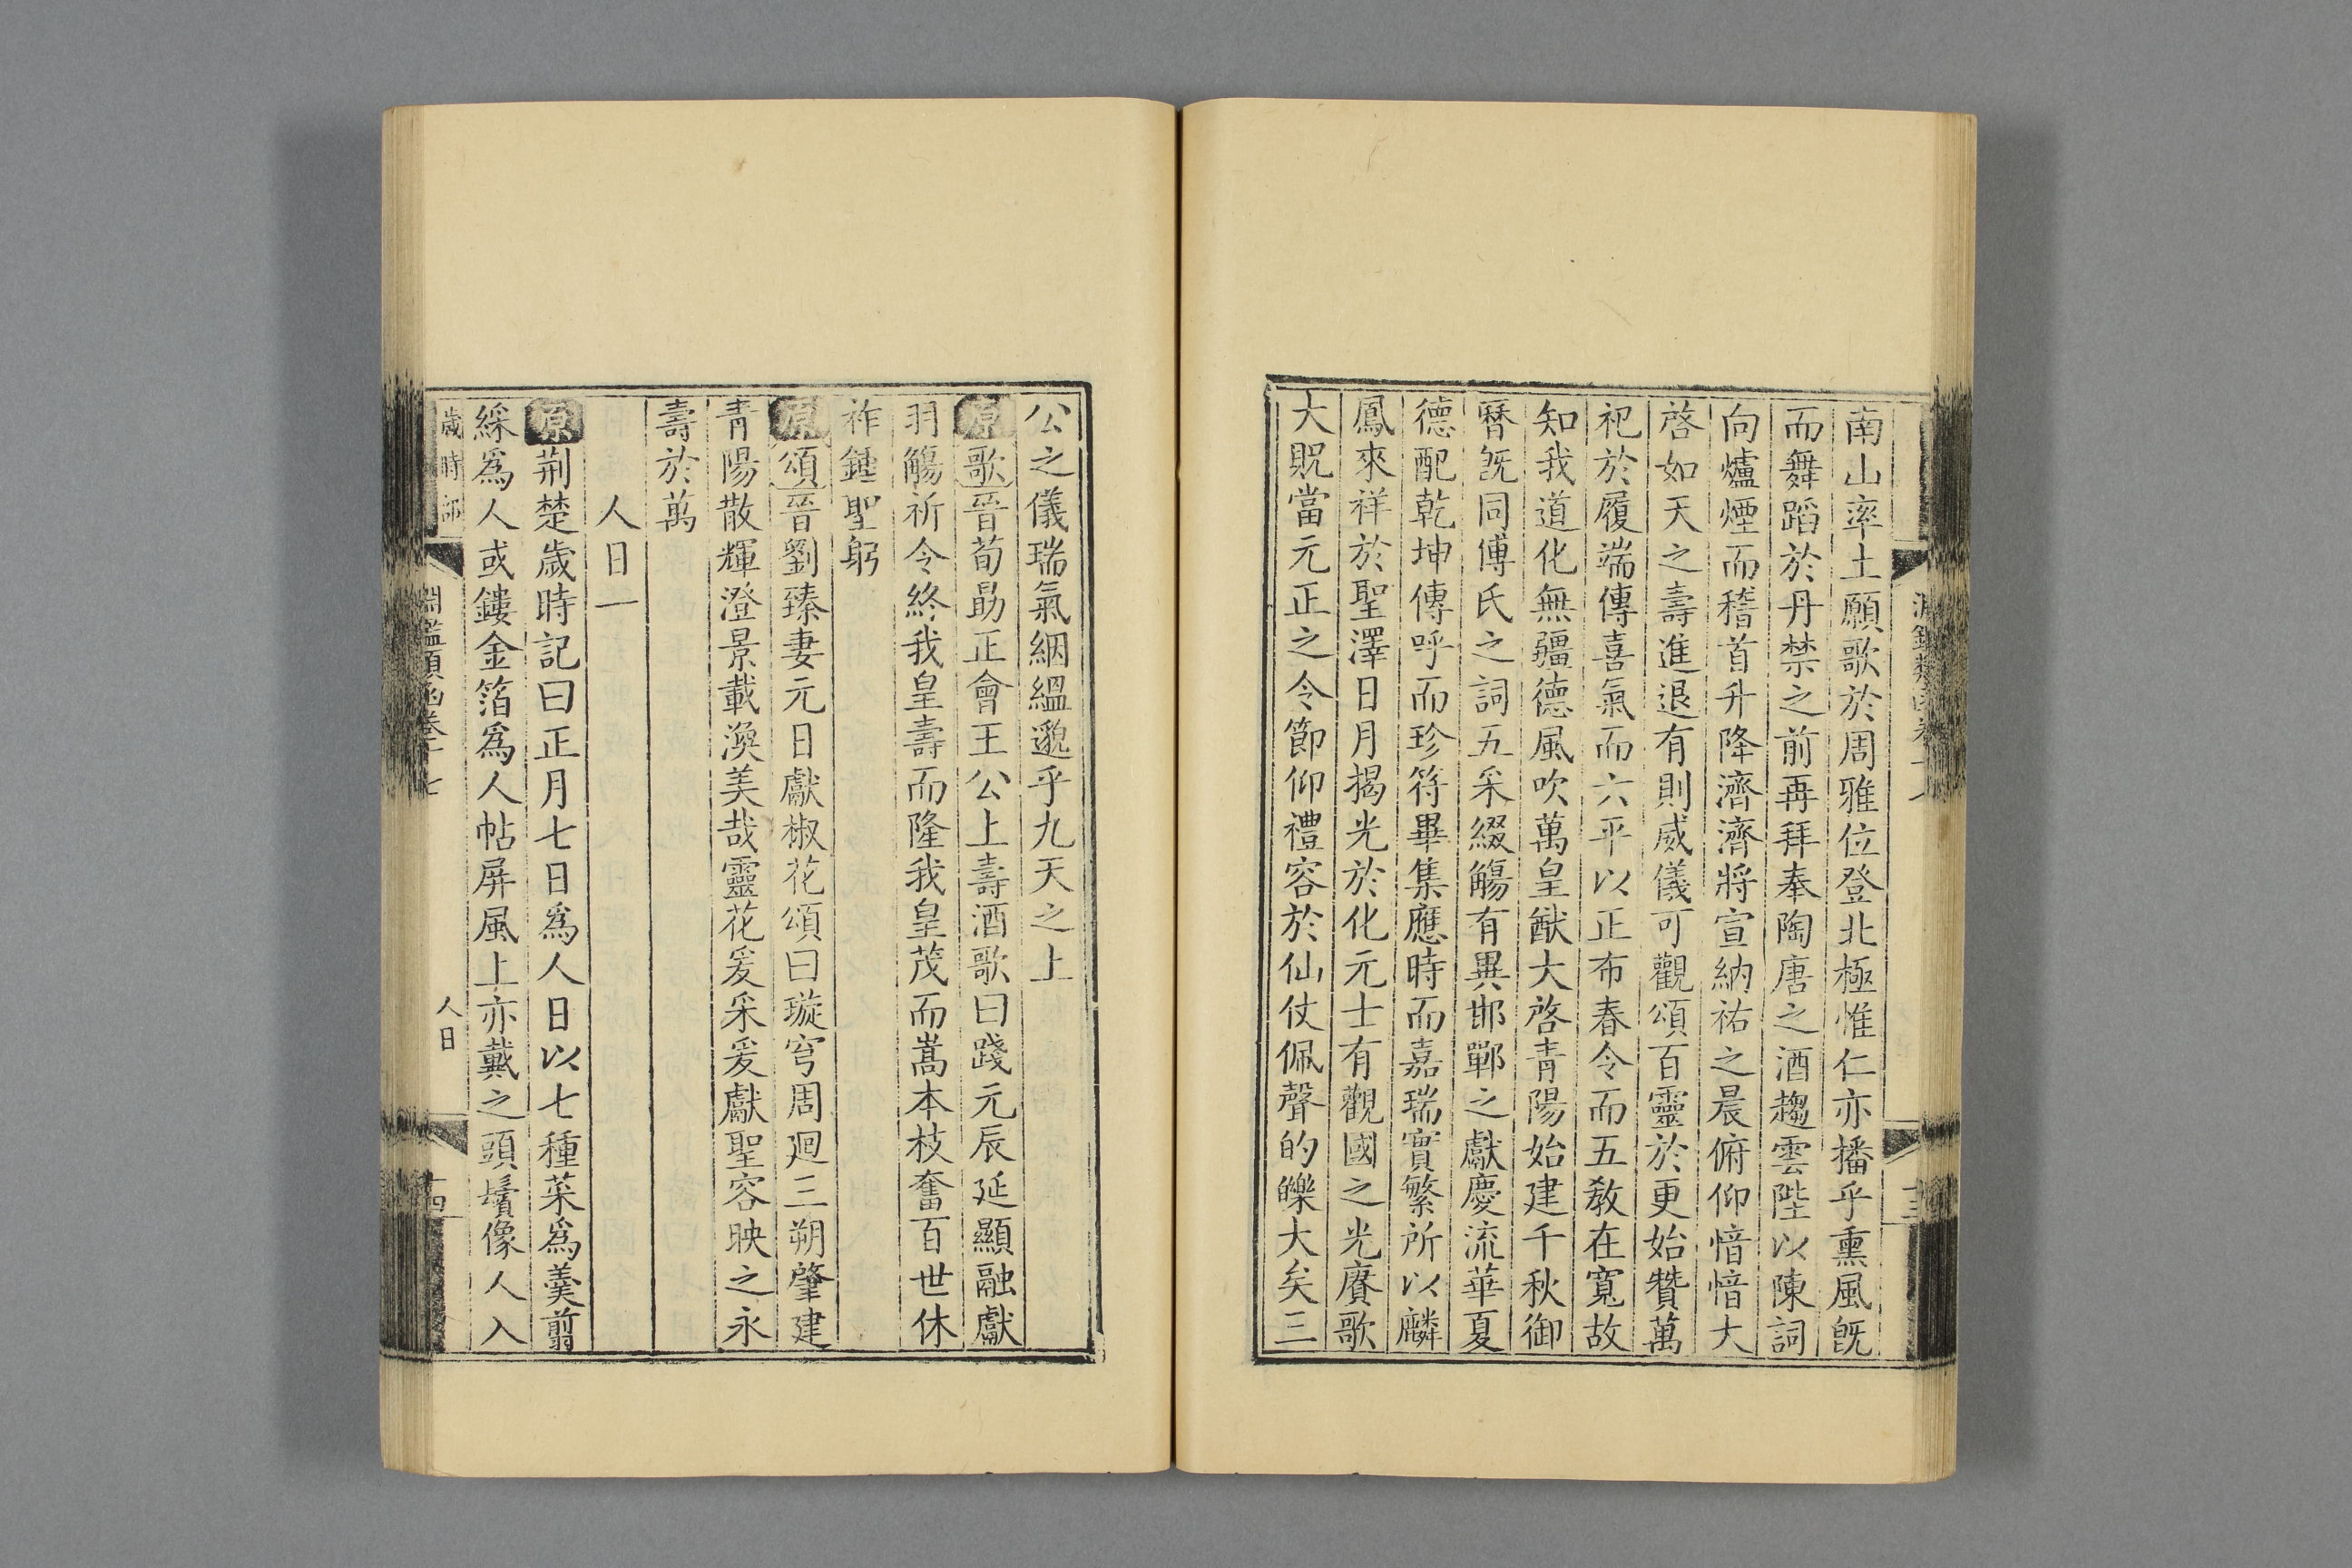 南山率土願歌於周雅位登北極惟仁亦播乎熏風旣
而舞蹈於丹禁之前再拜奉陶唐之酒趨雲陛以陳詞
向爐煙而稽首升降濟濟將宣納祐之晨俯仰愔愔大
啓如天之壽進退有則威儀可觀頌百靈於更始贊萬
祀於履端傳喜氣而六平以正布春令而五教在寬故
知我道化無疆德風吹萬皇猷大啓青陽始建千秋御
曆旣同傅氏之詞五采綴觴有異邯鄲之獻慶流華夏
德配乾坤傳呼而珍符畢集應時而嘉瑞實繁所以麟
鳳來祥於聖澤日月揭光於化元士有觀國之光賡歌
大貺當元正之令節仰禮容於仙仗佩聲的皪大矣三
公之儀瑞氣絪縕邈乎九天之上
原歌晉荀勗正會王公上壽酒歌曰踐元辰延顯融獻
羽觴祈令終我皇壽而隆我皇茂而嵩本枝奮百世休
祚鍾聖躬
原頌晉劉臻妻元日獻椒花頌曰璇穹周迴三朔肇建
青陽散輝澄景載渙美哉靈花爰采爰獻聖容映之永
壽於萬
人日一
原荊楚歲時記曰正月七日爲人日以七種菜爲羹翦
綵爲人或鏤金箔爲人帖屏風上亦戴之頭鬢像人入
歲時部
淵鑑類函卷十七
人日
十四